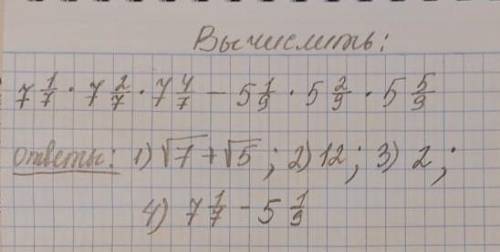 Вычислить:
7 1/7 · 7 2/7 · 7 4/7 − 5 1/9 · 5 2/9 · 5 5/9
ответы: 1) √7 + √5 ; 2) 12 ; 3) 2 ;
4) 7 1/7 − 5 1/9